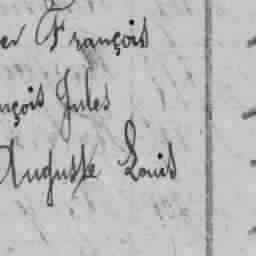 er François
nçois Jules
Auguste Louis